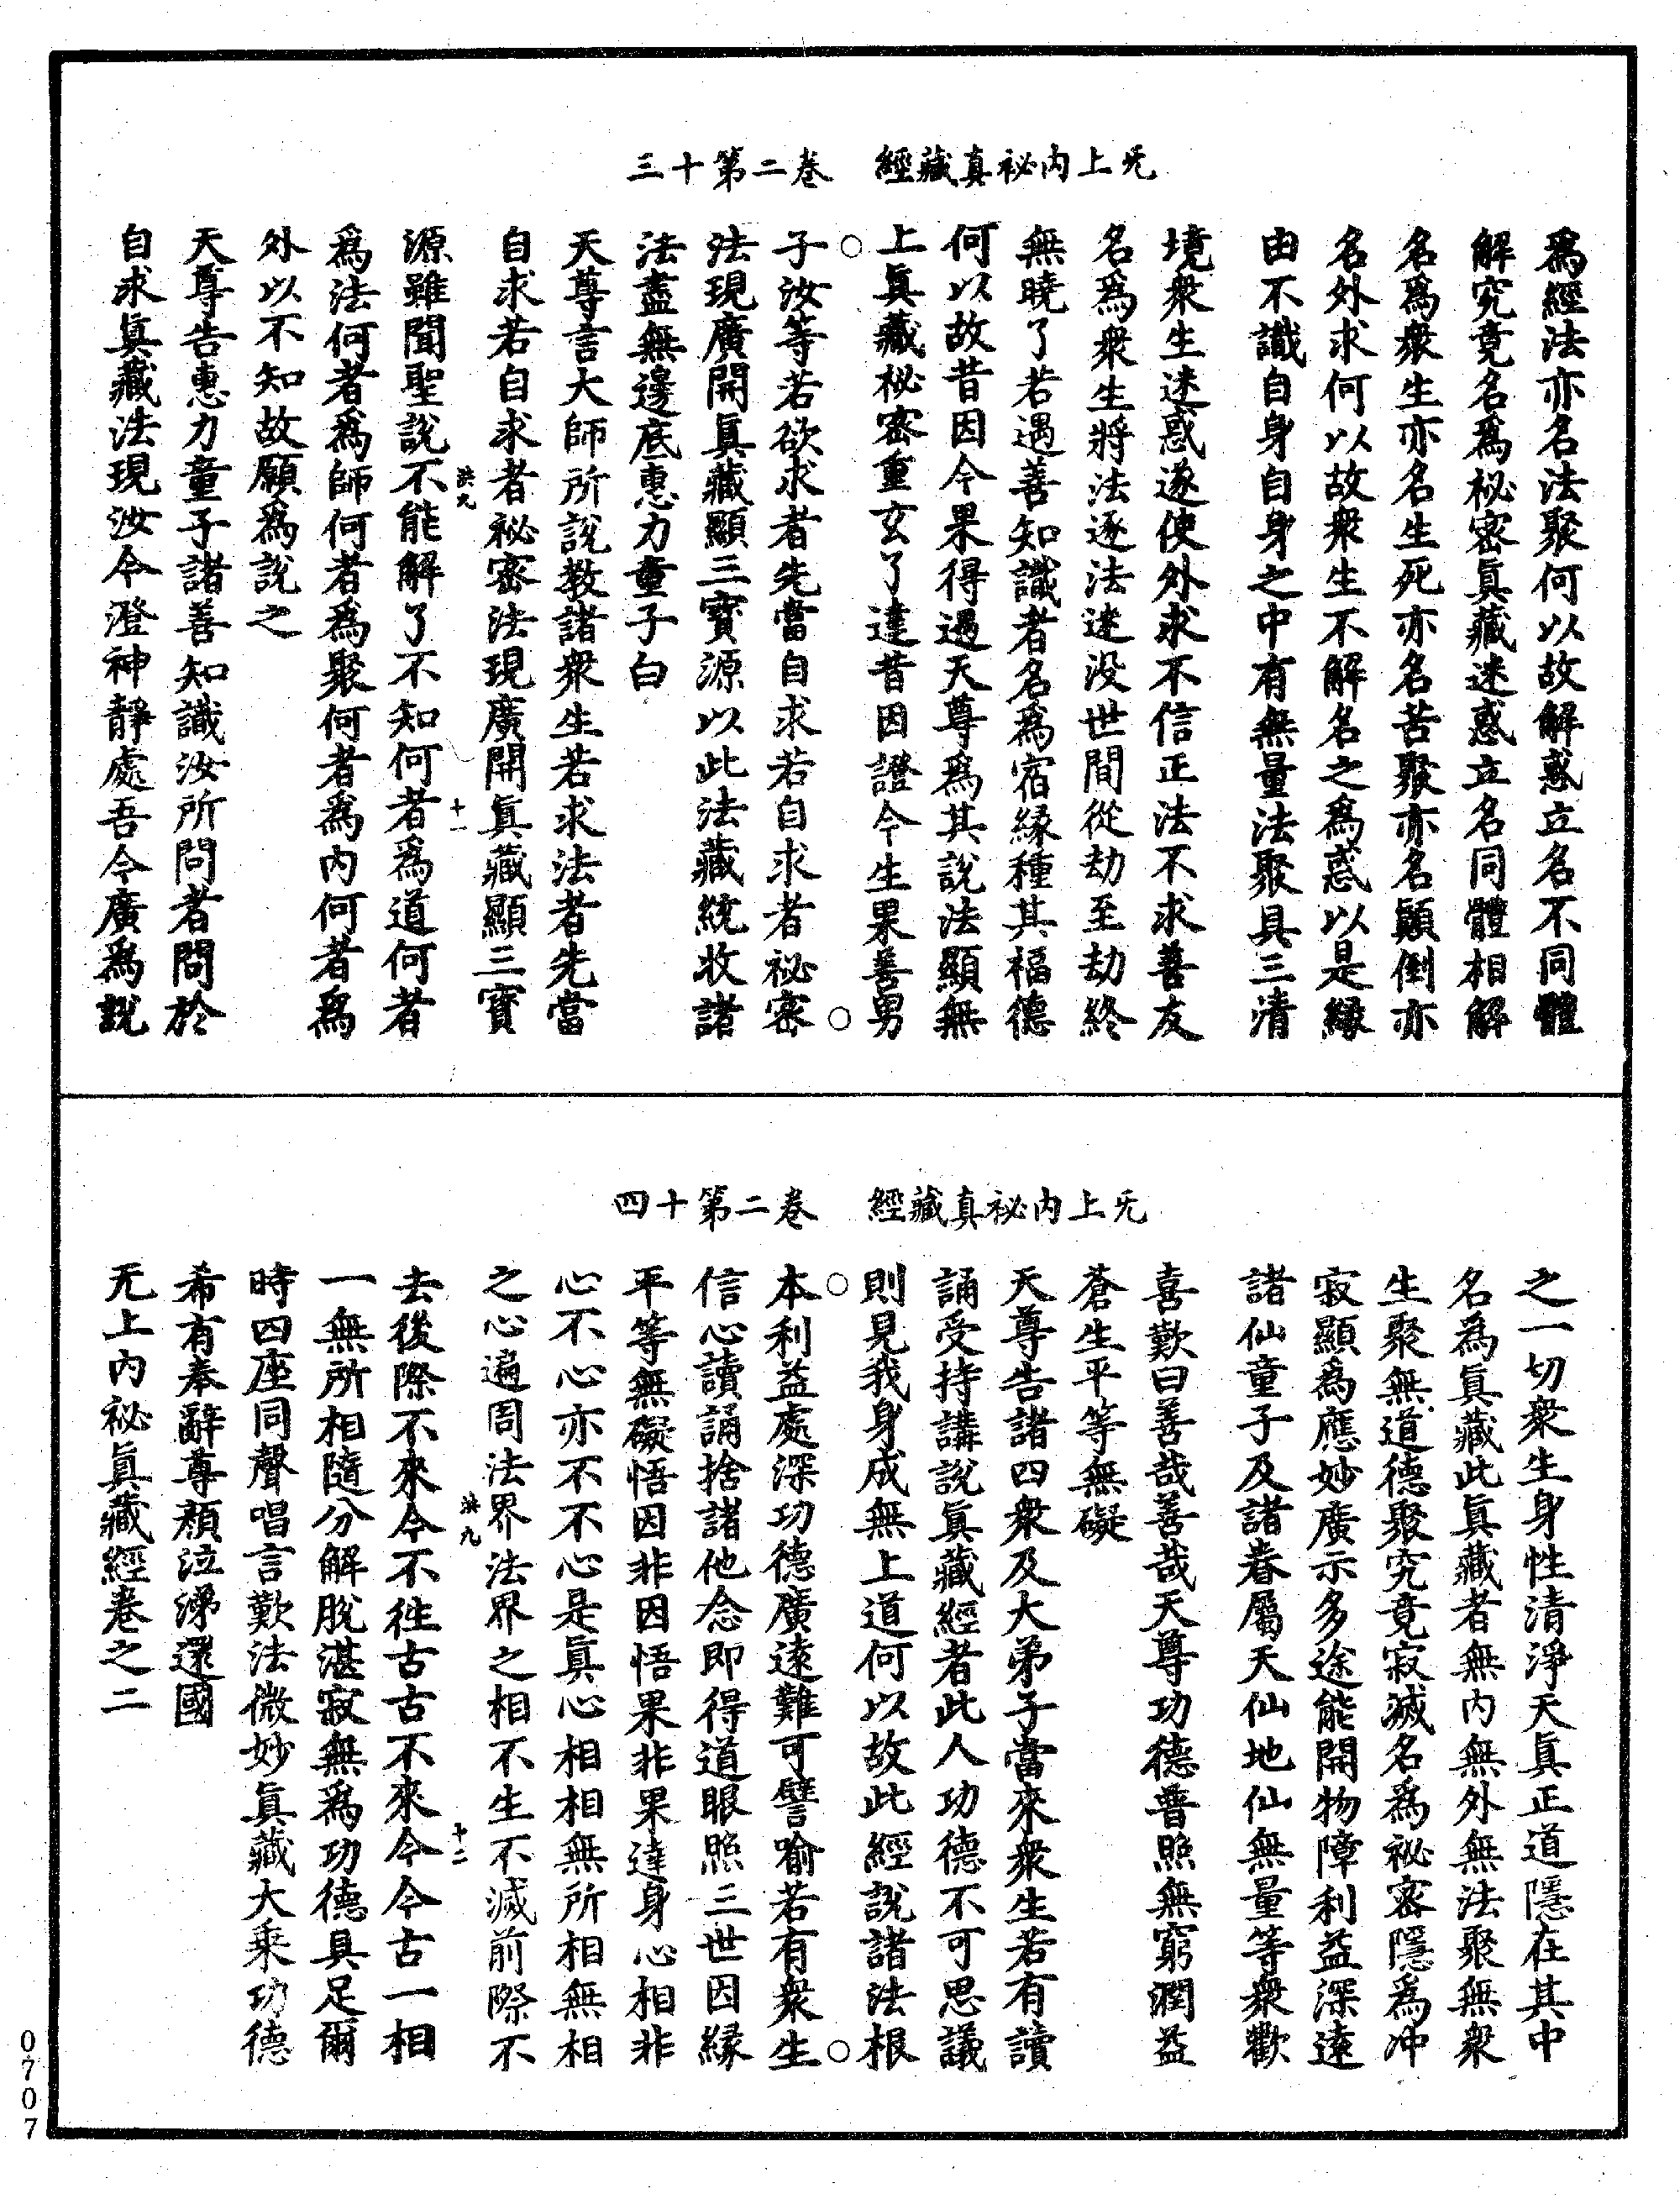 无上內祕真藏經　卷二第十三
爲經法亦名法聚何以故解惑立名不同體
解究竟名爲祕密眞藏迷惑立名同體相解
名爲衆生亦名生死亦名苦聚亦名顚倒亦
名外求何以故衆生不解名之爲惑以是緣
由不識自身自身之中有無量法聚具三清
境衆生迷惑遂使外求不信正法不求善友
名爲衆生將法逐法迷没世間從劫至劫終
無曉了若遇善知識者名爲宿緣種其福德
何以故昔因今果得遇天尊爲其說法顯無
上眞藏祕密重玄了達昔因證今生果善男
子汝等若欲求者先當自求若自求者祕密
法現廣開眞藏顯三寶源以此法藏統收諸
法盡無邊底惠力童子白
天尊言大師所說教諸衆生若求法者先當
自求若自求者祕密法現廣開眞藏顯三寶
洪九　十一
源雖聞聖說不能解了不知何者爲道何者
爲法何者爲師何者爲聚何者爲內何者爲
外以不知故願爲說之
天尊告惠力童子諸善知識汝所問者問於
自求眞藏法現汝今澄神靜處吾今廣爲說
无上內祕真藏經　卷二第十四
之一切衆生身性清淨天眞正道隱在其中
名為眞藏此眞藏者無內無外無法聚無衆
生聚無道德聚究竟寂滅名爲祕密隱爲冲
寂顯爲應妙廣示多途能開物障利益深遠
諸仙童子及諸眷屬天仙地仙無量等衆歡
喜歎曰善哉善哉天尊功德普照無窮潤益
蒼生平等無礙
天尊告諸四衆及大弟子當來衆生若有讀
誦受持講說眞藏經者此人功德不可思議
則見我身成無上道何以故此經說諸法根
本利益處深功德廣遠難可譬喻若有衆生
信心讀誦捨諸他念即得道眼照三世因緣
平等無礙悟因非因悟果非果達身心相非
心不心亦不不心是眞心相相無所相無相
之心遍周法界法界之相不生不滅前際不
洪九　十二
去後際不來今不徃古古不來今今古一相
一無所相隨分解脫湛寂無爲功德具足爾
時四座同聲唱言歎法微妙眞藏大乘功德
希有奉辭尊顏泣涕還國
无上內祕眞藏經卷之二
0707